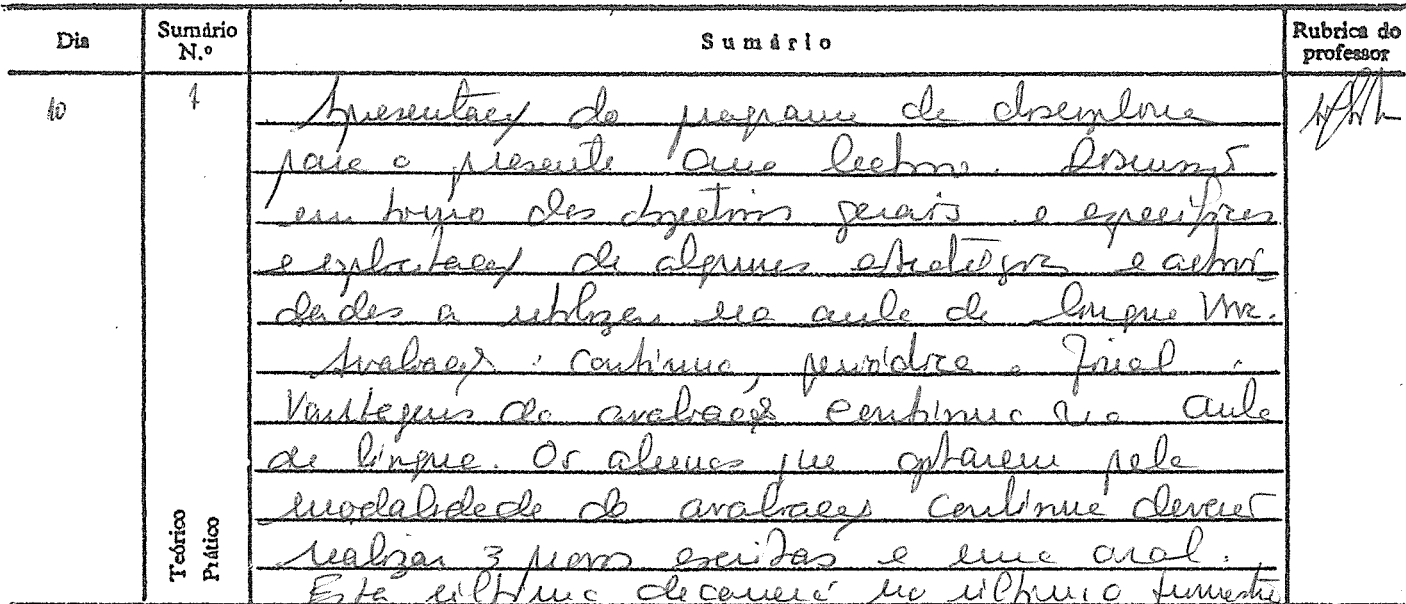 Dia
Sumário N.º
Sumário
Rubrica do professor
10
1
Apresentação do programa da disciplina
para o presente ano lectivo. Discussão
em torno dos objectivos gerais e específicos
e explicitação de algumas estratégias e activi-
dades a utilizar na aula de língua viva.
Avaliação: contínua, periódica e final.
Vantagens da avaliação contínua na aula
de língua. Os alunos que optarem pela
modalidade de avaliação contínua deverão
realizar 3 provas escritas e uma oral.
Esta última decorrerá no último trimestre
Teórico
Prático